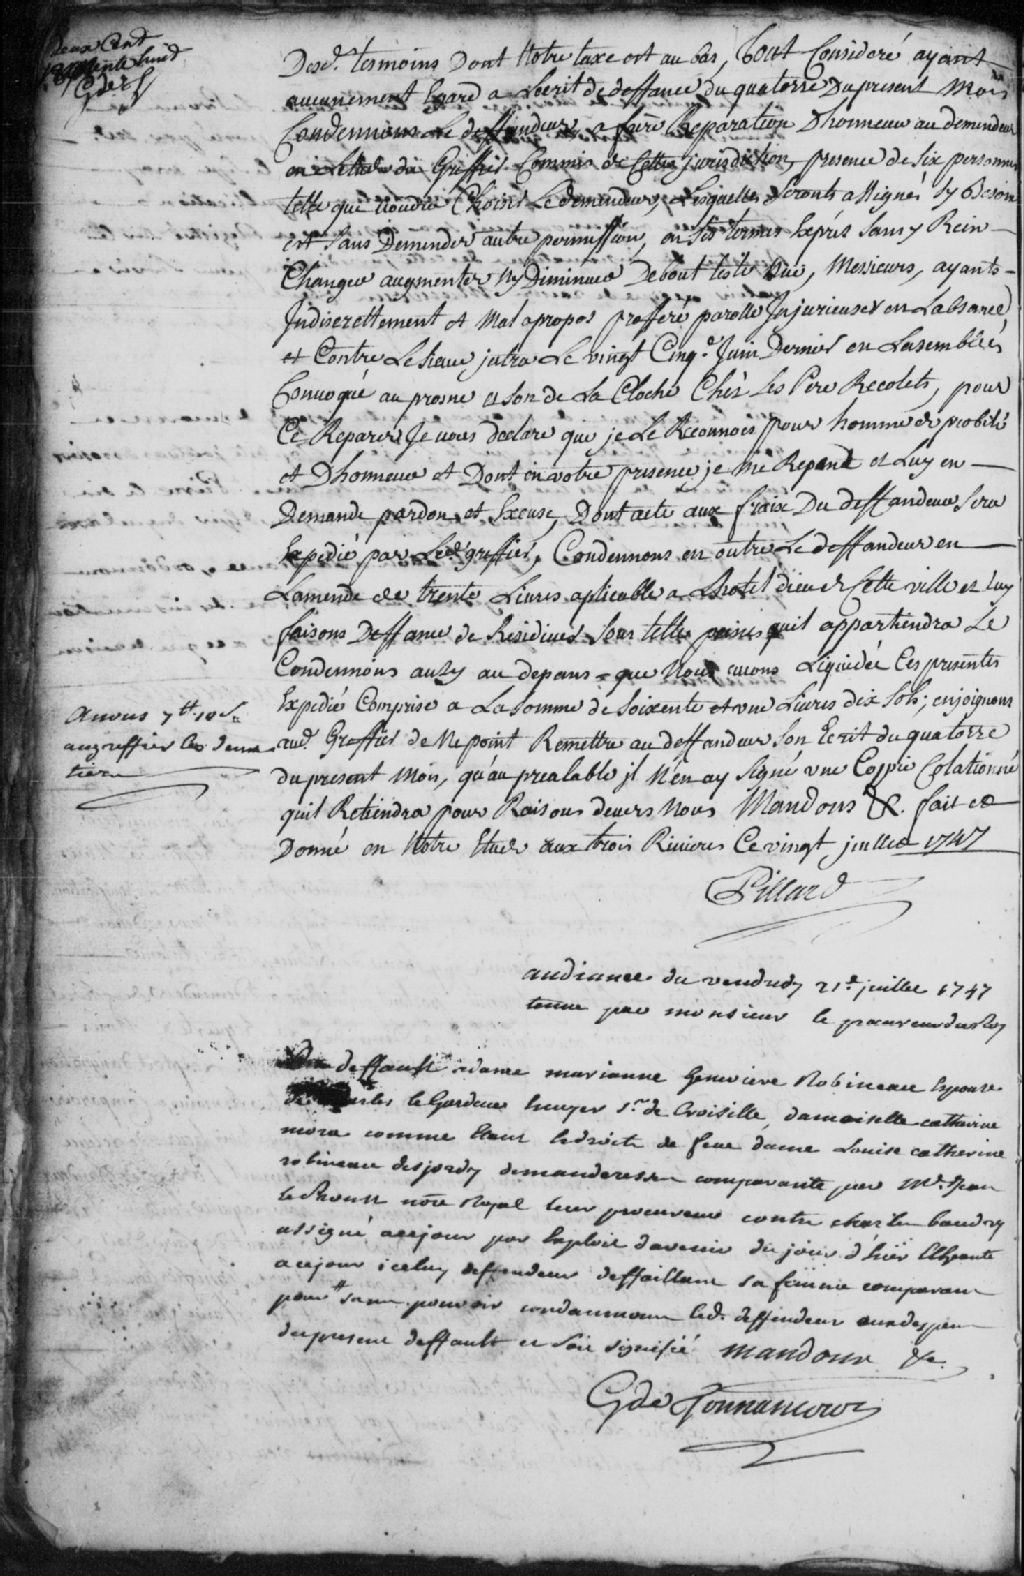 Deux Cent
Septente huit
G de T
Desd. tesmoins Dont Notre taxe est au bas, Tout Consideré ayant
aucunement Egard a Lecrit de deffance du quatorze Du present Mois
Condennons Le deffandeur a faire Reparation Dhonneur au demandeur
en Letude du Greffier Commis de Cette jurisdiction, presence de six personnes
telle que voudra Choisir Le demandeur, Lesquelles seronts assignés sy Besoin
est sans Demander autre permission, en ses termes Exprés sans y Rein
Changer augmenter Ny Diminuer De bout teste Nue, Messieurs, ayants
Indiscrettement et Mal apropos proffere parolle Injurieuses en Labsance
et Contre Le sieur jutra Le vingt Cinq.e Juin Dernier en Lasemblée
Convoqué au prosne et son de La Cloche Chés Les Pere Recolets, pour
Ce Reparer Je vous declare que je Le Reconnois pour homme de probité
et Dhonneur et Dont en votre presence je me Repend et Luy en
Demande pardon et Excuse, Dont acte aux fraix Du deffandeur sera
Expedié par Led. greffier, Condennons en outre Le deffandeur en
Lamende de trente Livres aplicable a Lhotel dieu de Cette ville et luy
faisons Deffance de Residiver sous telle peines quil appartiendra Le
Condennons aussy au depans que Nous avons Liquidée Ces presentes
Expedié Comprise a La somme de soixente et une Livres dix sols; enjoignons
aud. Greffier de Ne point Remettre au deffandeur son Ecrit du quatorze
du present Mois, qu'au prealable il N'en ay signé une Coppie Colationné
quil Retiendra pour Raisons devers Nous Mandons &c. fait et
Donné en Notre Etude aux trois Rivieres Ce vingt juillet 1747
Anous 7tt 10s
au greffier les deux
tiers
Pillard
audiance du vendredy 21e juillet 1747
tenue par monsieur le procureur du Roy
deffault a dame marianne Genevieve Robineau Epouse
de Charles le Gardeur Ecuyer Sr. de Croisille, damoiselle catherine
mora comme Etant Ledroits de feue dame Louise catherine
robineau desjordy demanderesse comparante par Mr. Jean
le Proust nore Royal leur procureur contre charles baudry
assigné acejour par Exploit davenir du jour d'hier
acejour iceluy deffendeur deffaillant sa femme comparant
pour sans pouvoir condamnons led. deffendeur aux depens
du present deffault et soit signifié mandons &c.
G de Tonnancour